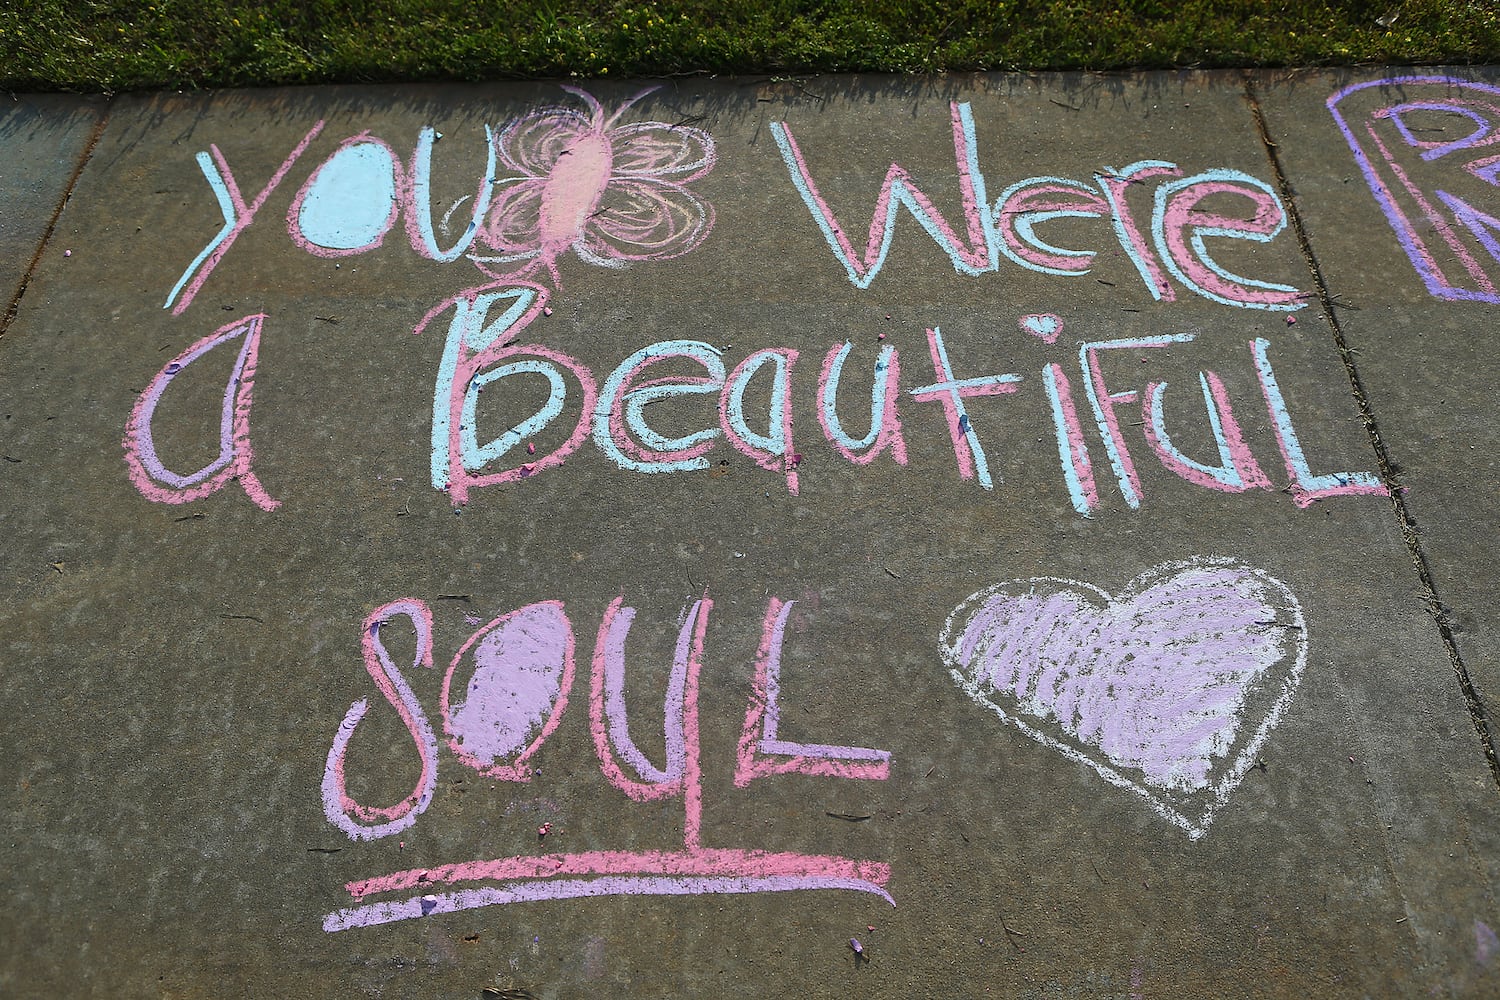 you were
a Beautiful
soul